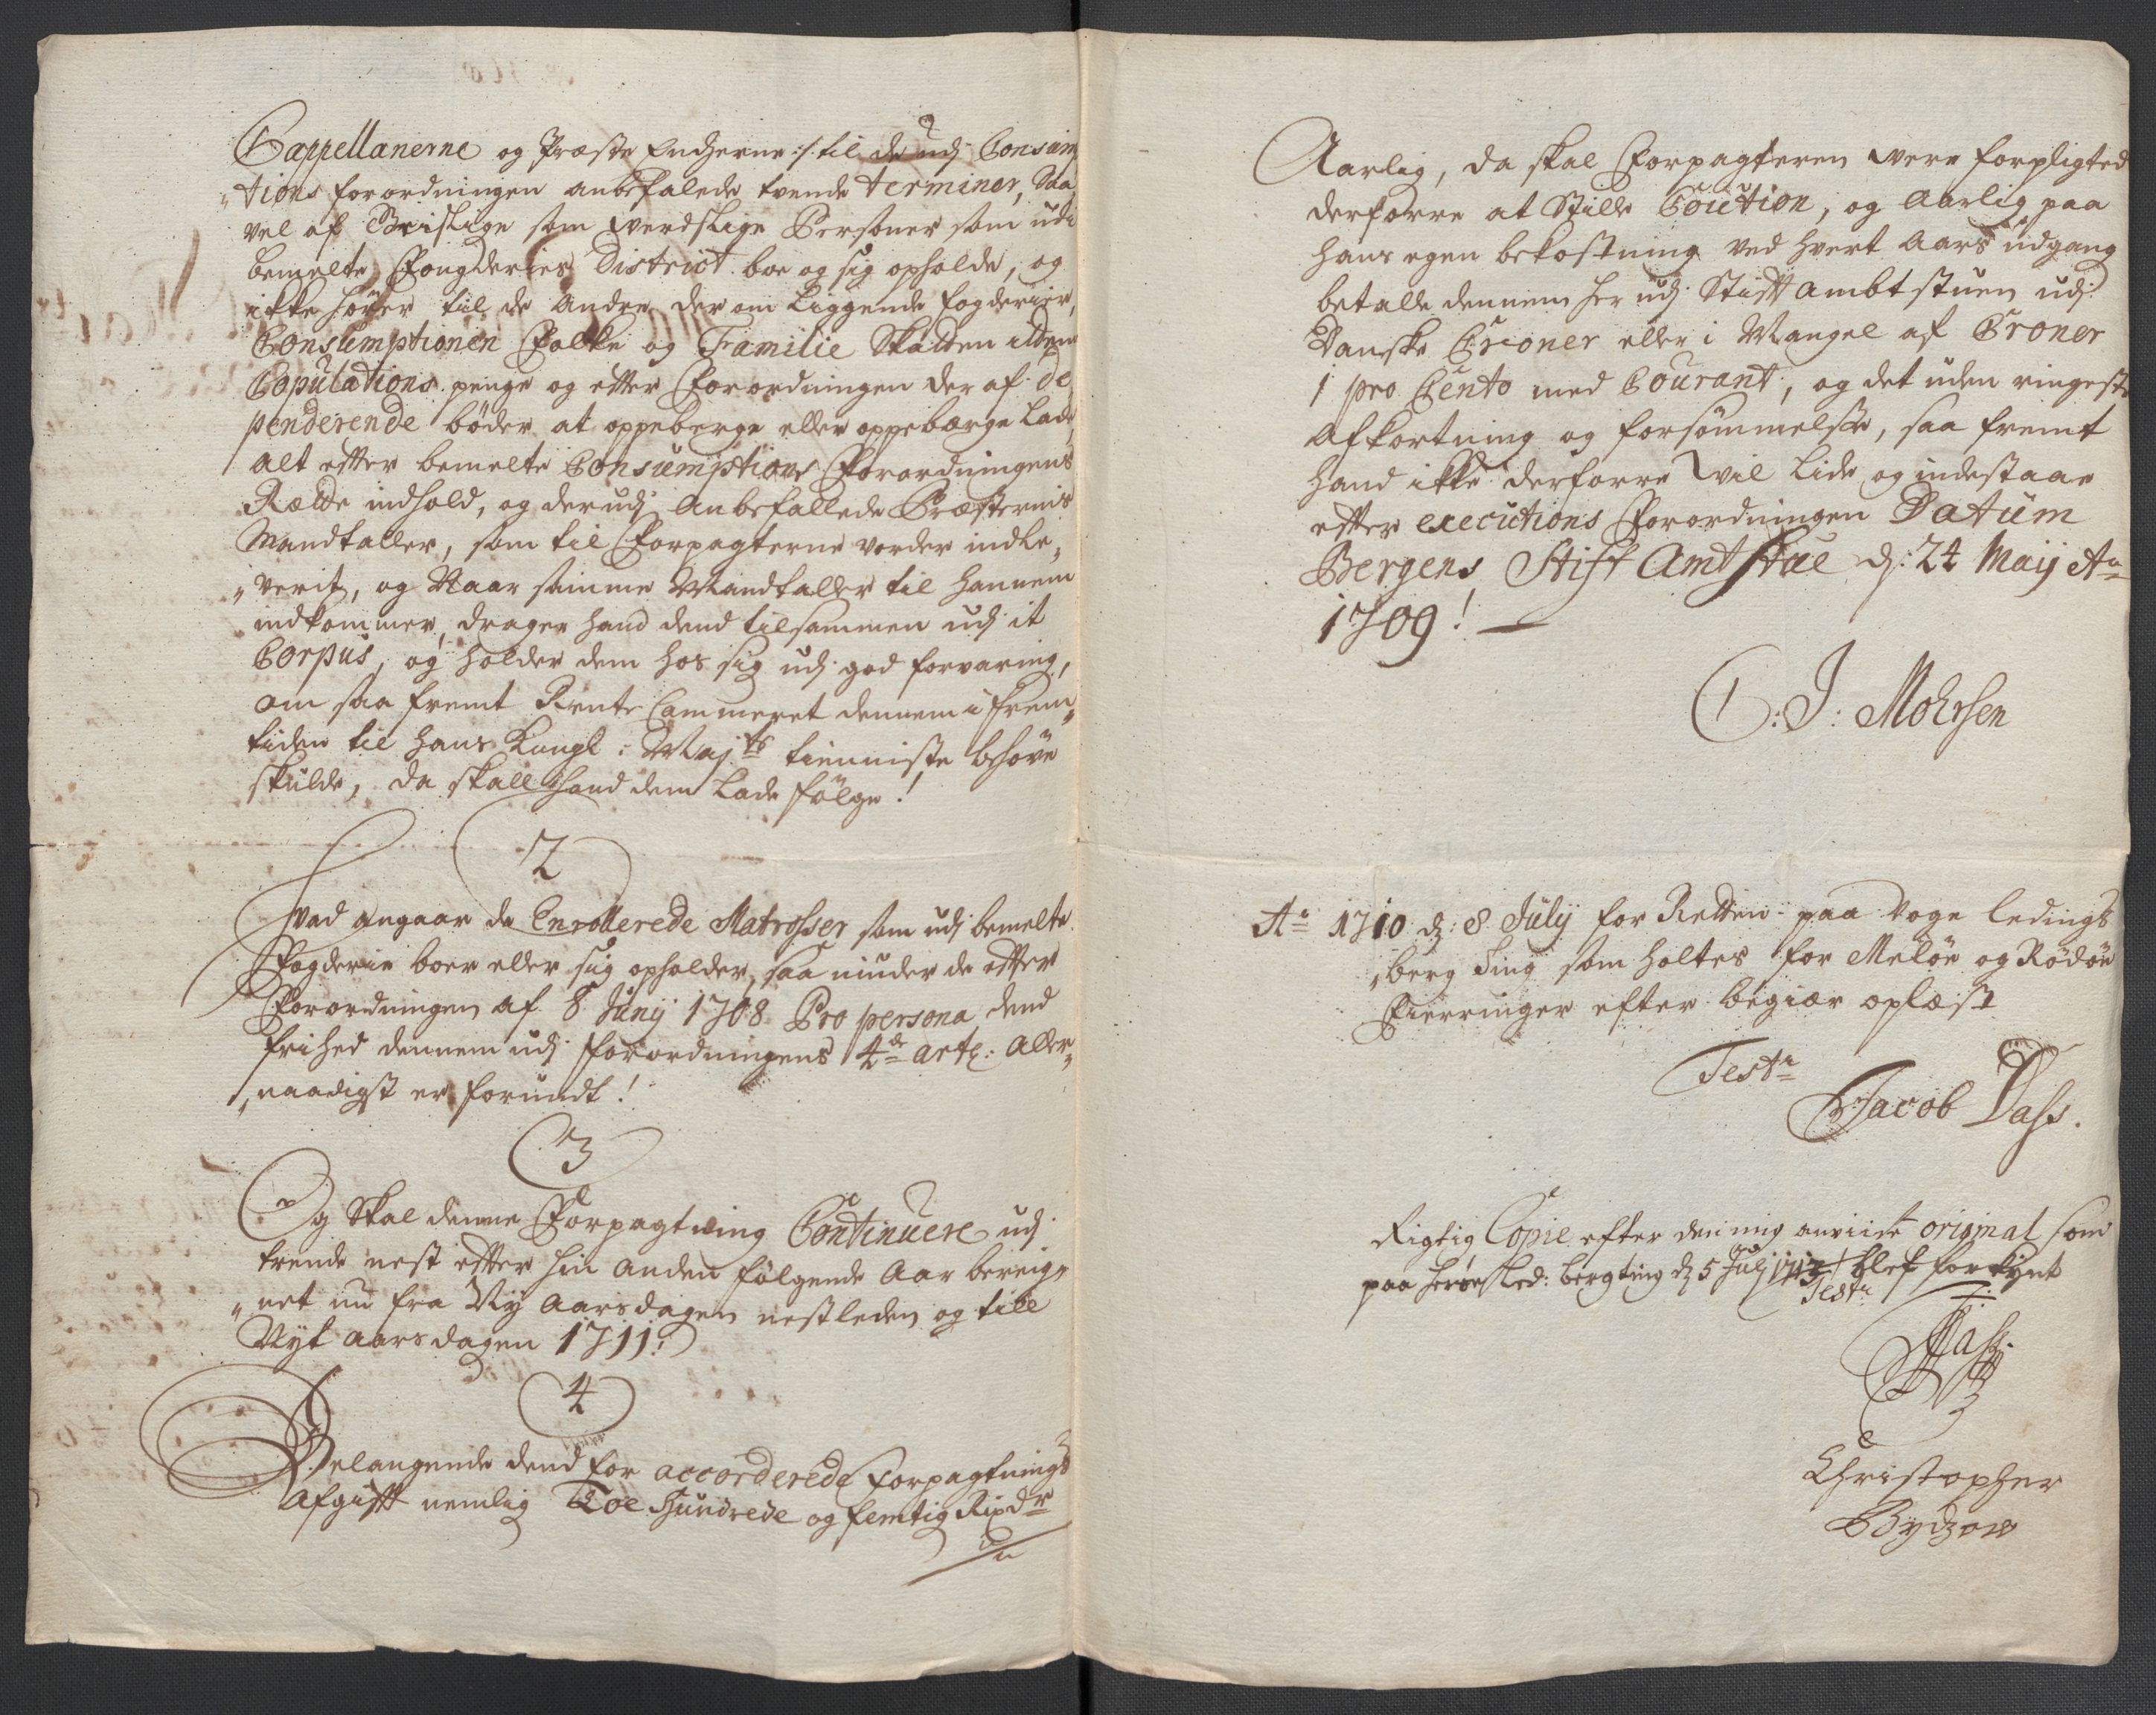 Cappellanerne og Præste Enckerne :/: til de udj Consum
„tions forordningen anbefalede tvende terminer, Saa
vel af Geistlige som werdslige Personer som udi
bemelte Fougderies District boe og sig opholde, og
ikke hører til de andre der om Liggende fogderier,
Consumptionen Folke og Familie Skatten item
Copulations penge og efter Forordningen der af de
penderende bøder at oppeberge eller oppebærge Lade,
alt efter bemelte Consumptions Forordningens
Rætte indhold, og derudj Anbefallede Præsternis
Mandtaller, som til Forpagterne vorder indle„
„verit, og Naar samme Mandtaller til hannem
indkommer, drager hand dend tilsammen udj it
Corpus, og holder dem hos sig udj god forvaring,
om saa fremt Rente Cammeret dennem i frem„
tiden til hans Kongl: Maj:ts tienniste behøve
skulde, da skall hand dem Lade følge!
2
Hvad angaar de Enrollerede Matrosser som udj bemelte
Fogderie boer eller sig opholder, saa niuder de efter
Forordningen af 8 Junij 1708 Pro persona dend
frihed dennem udj forordningens 4de artl: aller„
„naadigst er forundt!
3
Og Skal denne Forpagtning Continuere udj
trende nest efter hin anden følgende Aar bereig„
„net nu fra Ny Aarsdagen nestleden og till
Nyt aarsdagen 1711!
4
Belangende dend for accorderede Forpagtnings
Afgift nemlig Toe Hundrede og femtig Rixdr
Aarlig, da skal Forpagteren were forpligted
derforre at Stille Coution, og Aarlig paa
hans egen bekostning ved hvert Aars udgang
betalle dennem her udj Stift ambtstuen udj
Danske Croner eller i Mangel af Croner
1 pro Cento med Courant, og det uden ringeste
Afkortning og forsømmelse, saa fremt
hand ikke derforre wil Lide og indestaae
efter executions Forordningen Datum
Bergens Stift Amt Stue d: 24 Maij Ao
1709!
C: J: Mohrsen
Ao 1710 d: 8 Julij for Retten paa Voge ledings
„berg Ting som holtes for Meløe og Rødøe
Fierringer efter begiær oplæst
Teste
Jacob Dass.
Rigtig Copie efter den mig anviiste original som
paa Herøe Led: bergting d 5 Julj blef forkynt
Teste
Dass.
Christopher
Bydzow